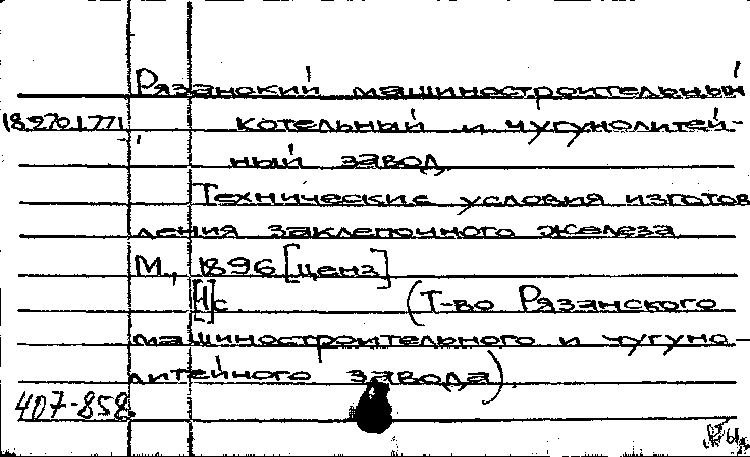 Рязанский машиностроительный
18.270.1.771 котельный и чугунолитей-
ный завод
Технические условия изготов
ления заклепочного железа
М., 1896 [ценз]
[4]с. (Т-во Рязанского
машиностроительного и чугуно-
литейного завода).
407-858